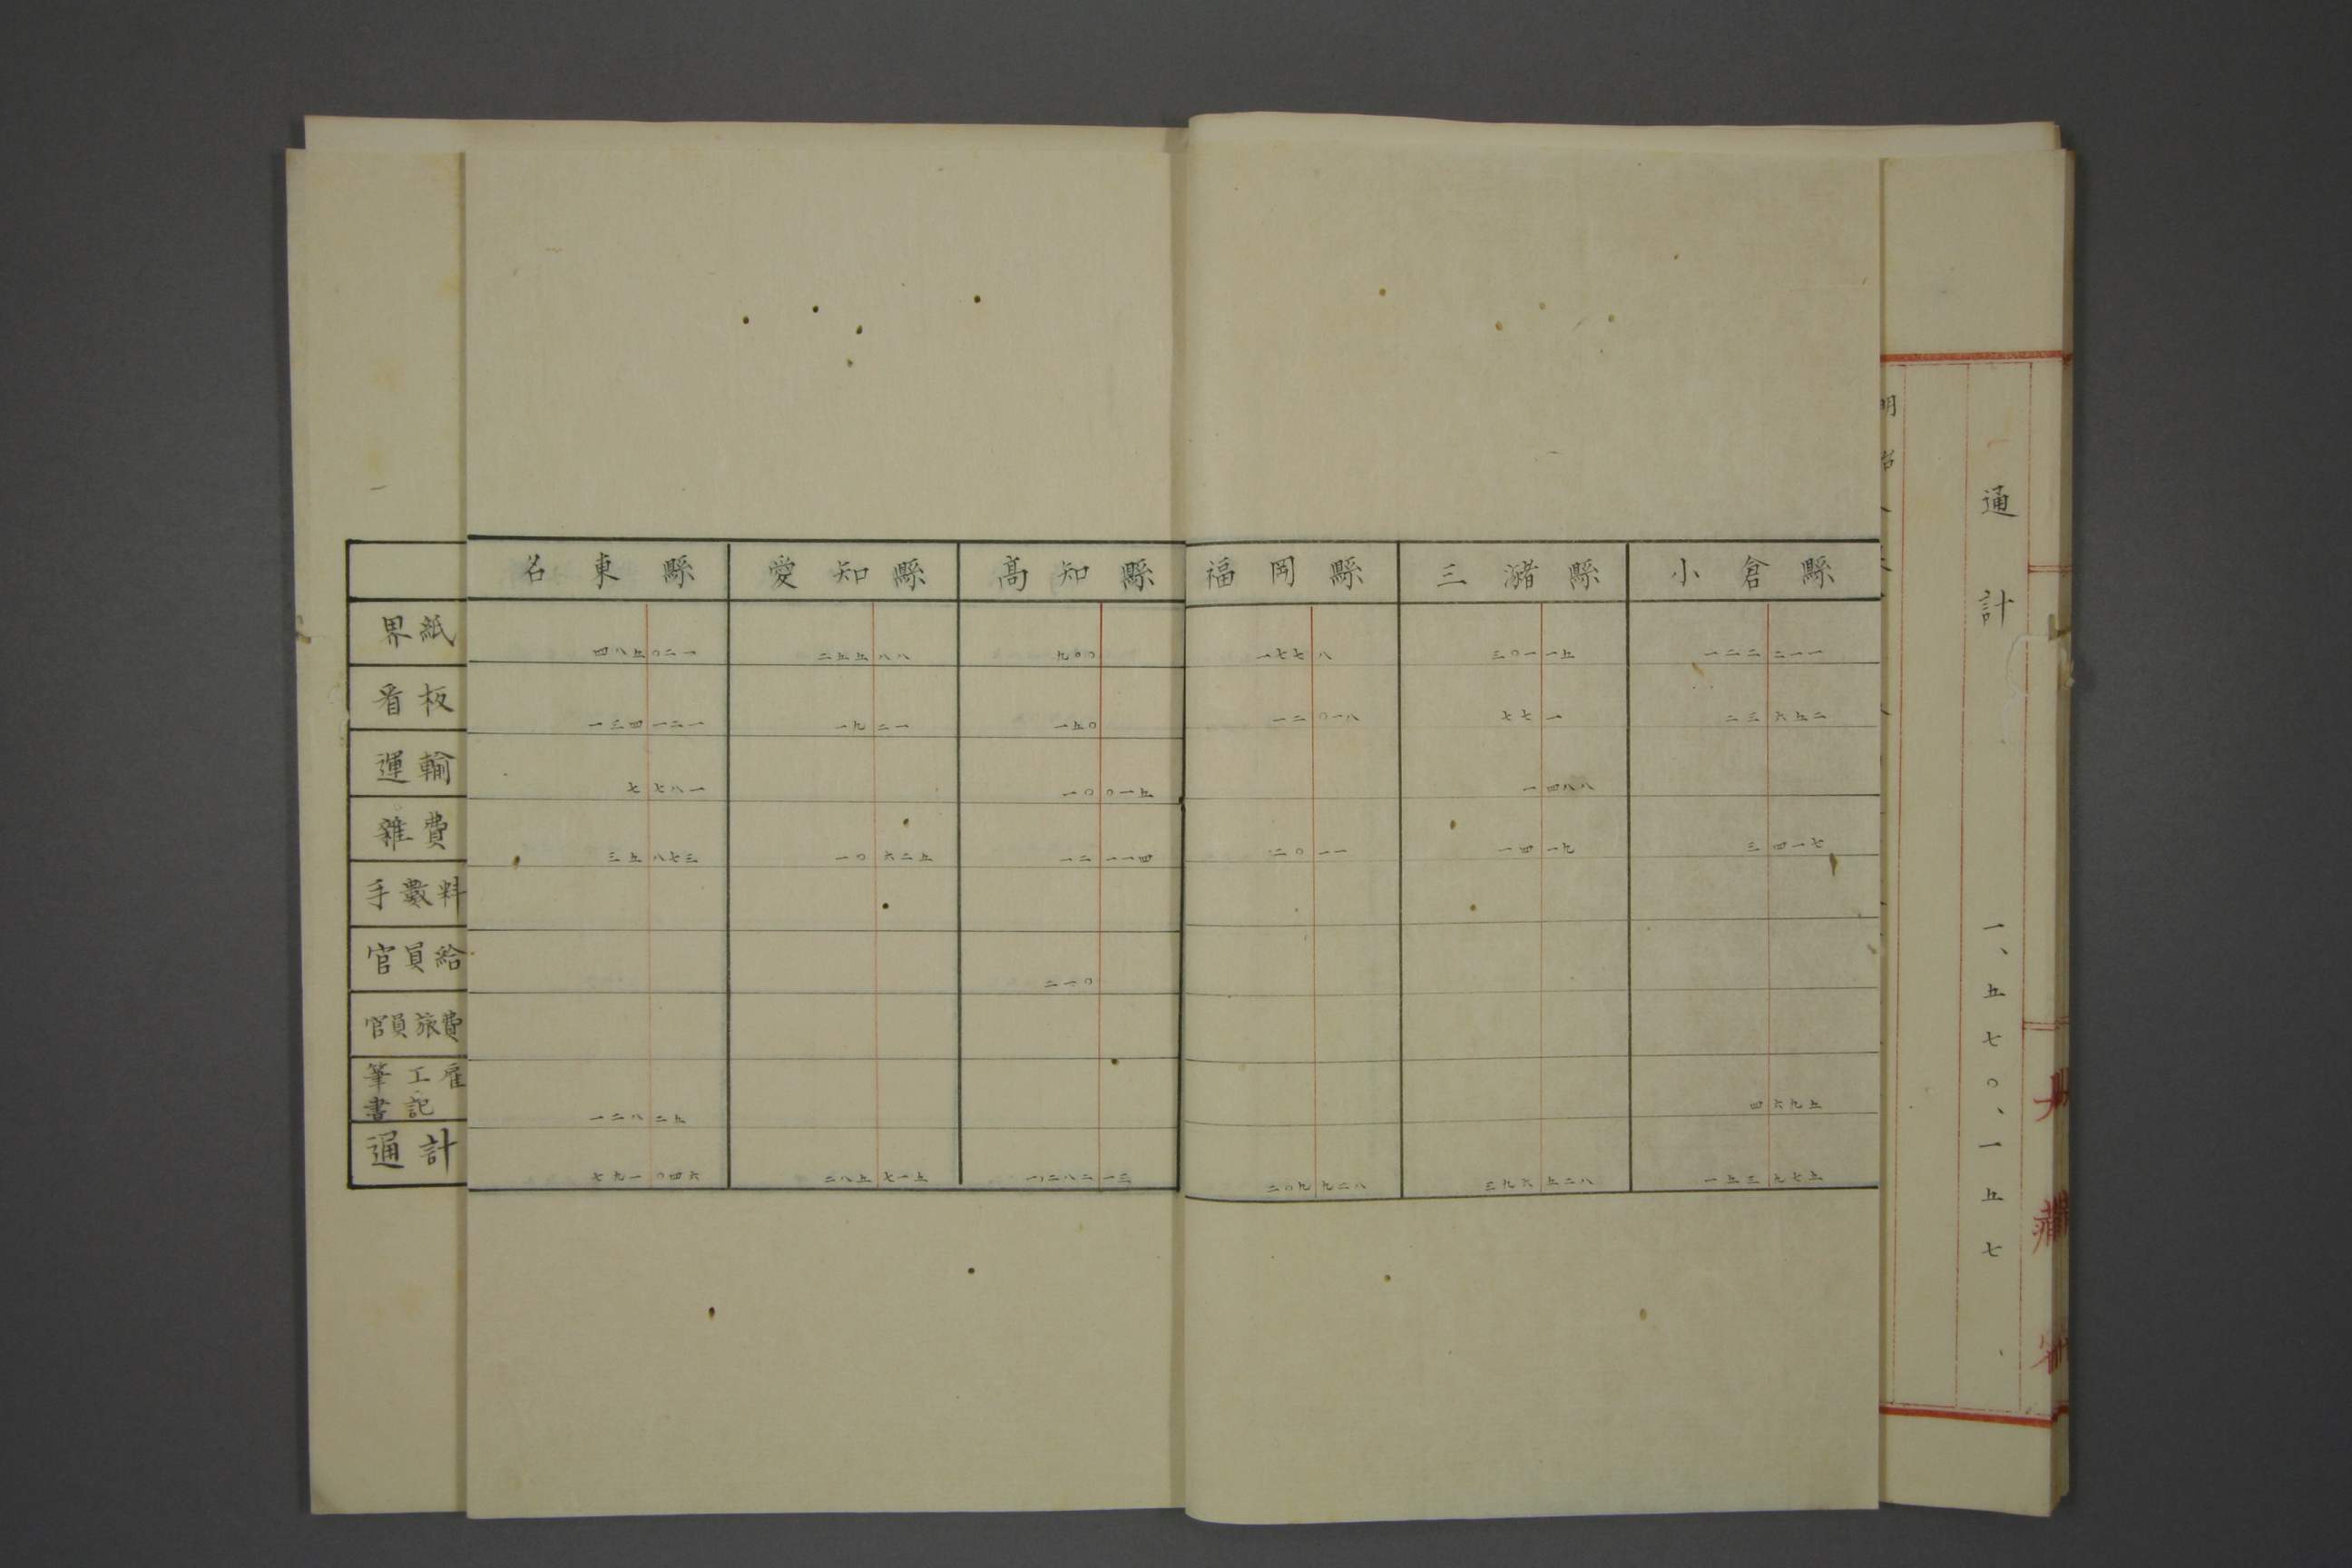 名東縣 愛知縣 高知縣 福岡縣 三潴縣 小倉縣
界紙 四八五〇二一 二五五八八 九〇〇 一七七八 三〇一一五 一二二二一一
看板 一三四一二一 一九二一 一五〇 一二〇一八 七七一 二三六五二
運輸 七七八一 一〇〇一五 一四八八
雜費 三五八七三 一〇六二五 一二一一四 二〇一一 一四一九 三四一七
手數料
官員給 二一〇
官員旅費
筆工雇
書記 一二八二五 四六九五
通計 七九一〇四六 二八五七一五 一、二八二一三 二〇九九二八 三九六五二八 一五三九七五
通計 一、五七〇、一五七
明治